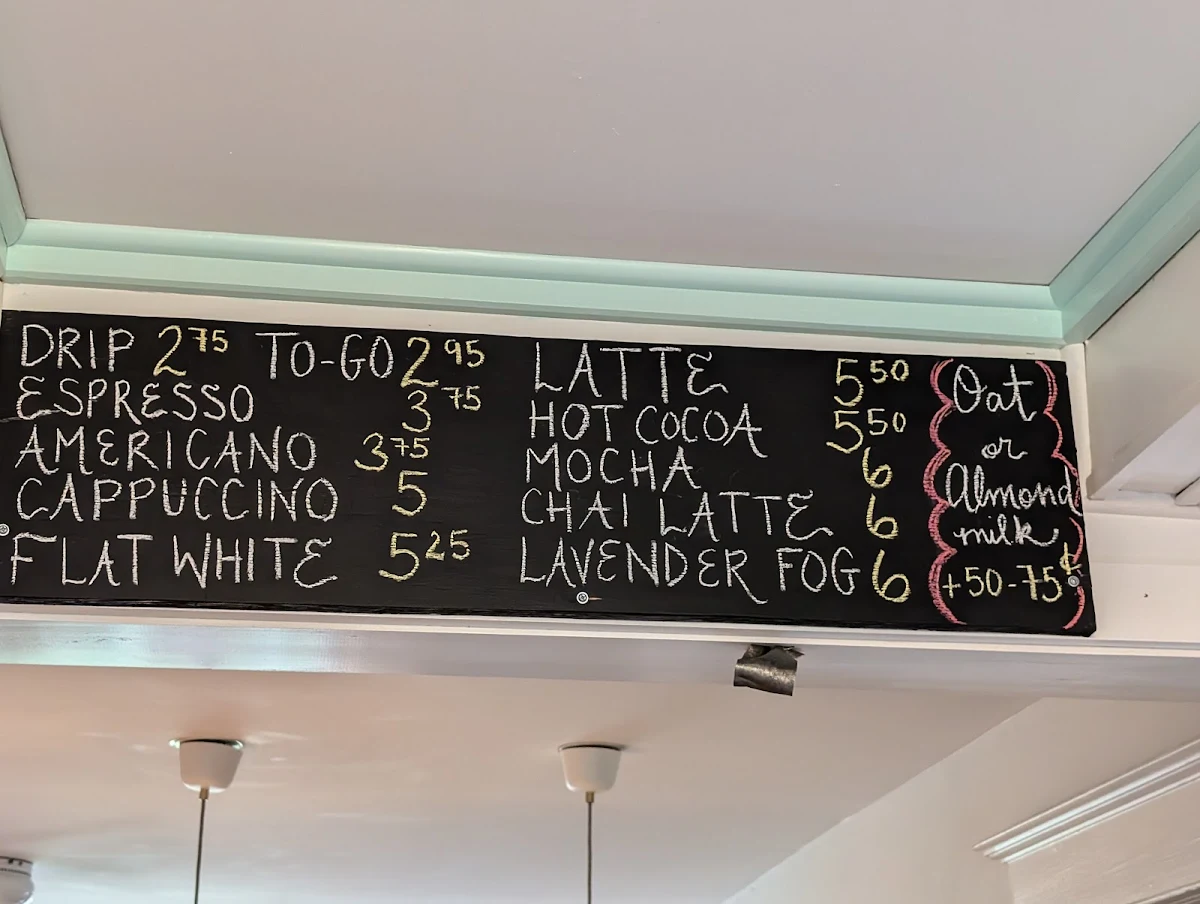 DRIP 2.75 TO-GO 2.95
ESPRESSO 3.75
AMERICANO 3.75
CAPPUCCINO 5
FLAT WHITE 5.25
LATTE 5.50
HOT COCOA 5.50
MOCHA 6
CHAI LATTE 6
LAVENDER FOG 6
Oat
or
Almond
milk
+50-75¢